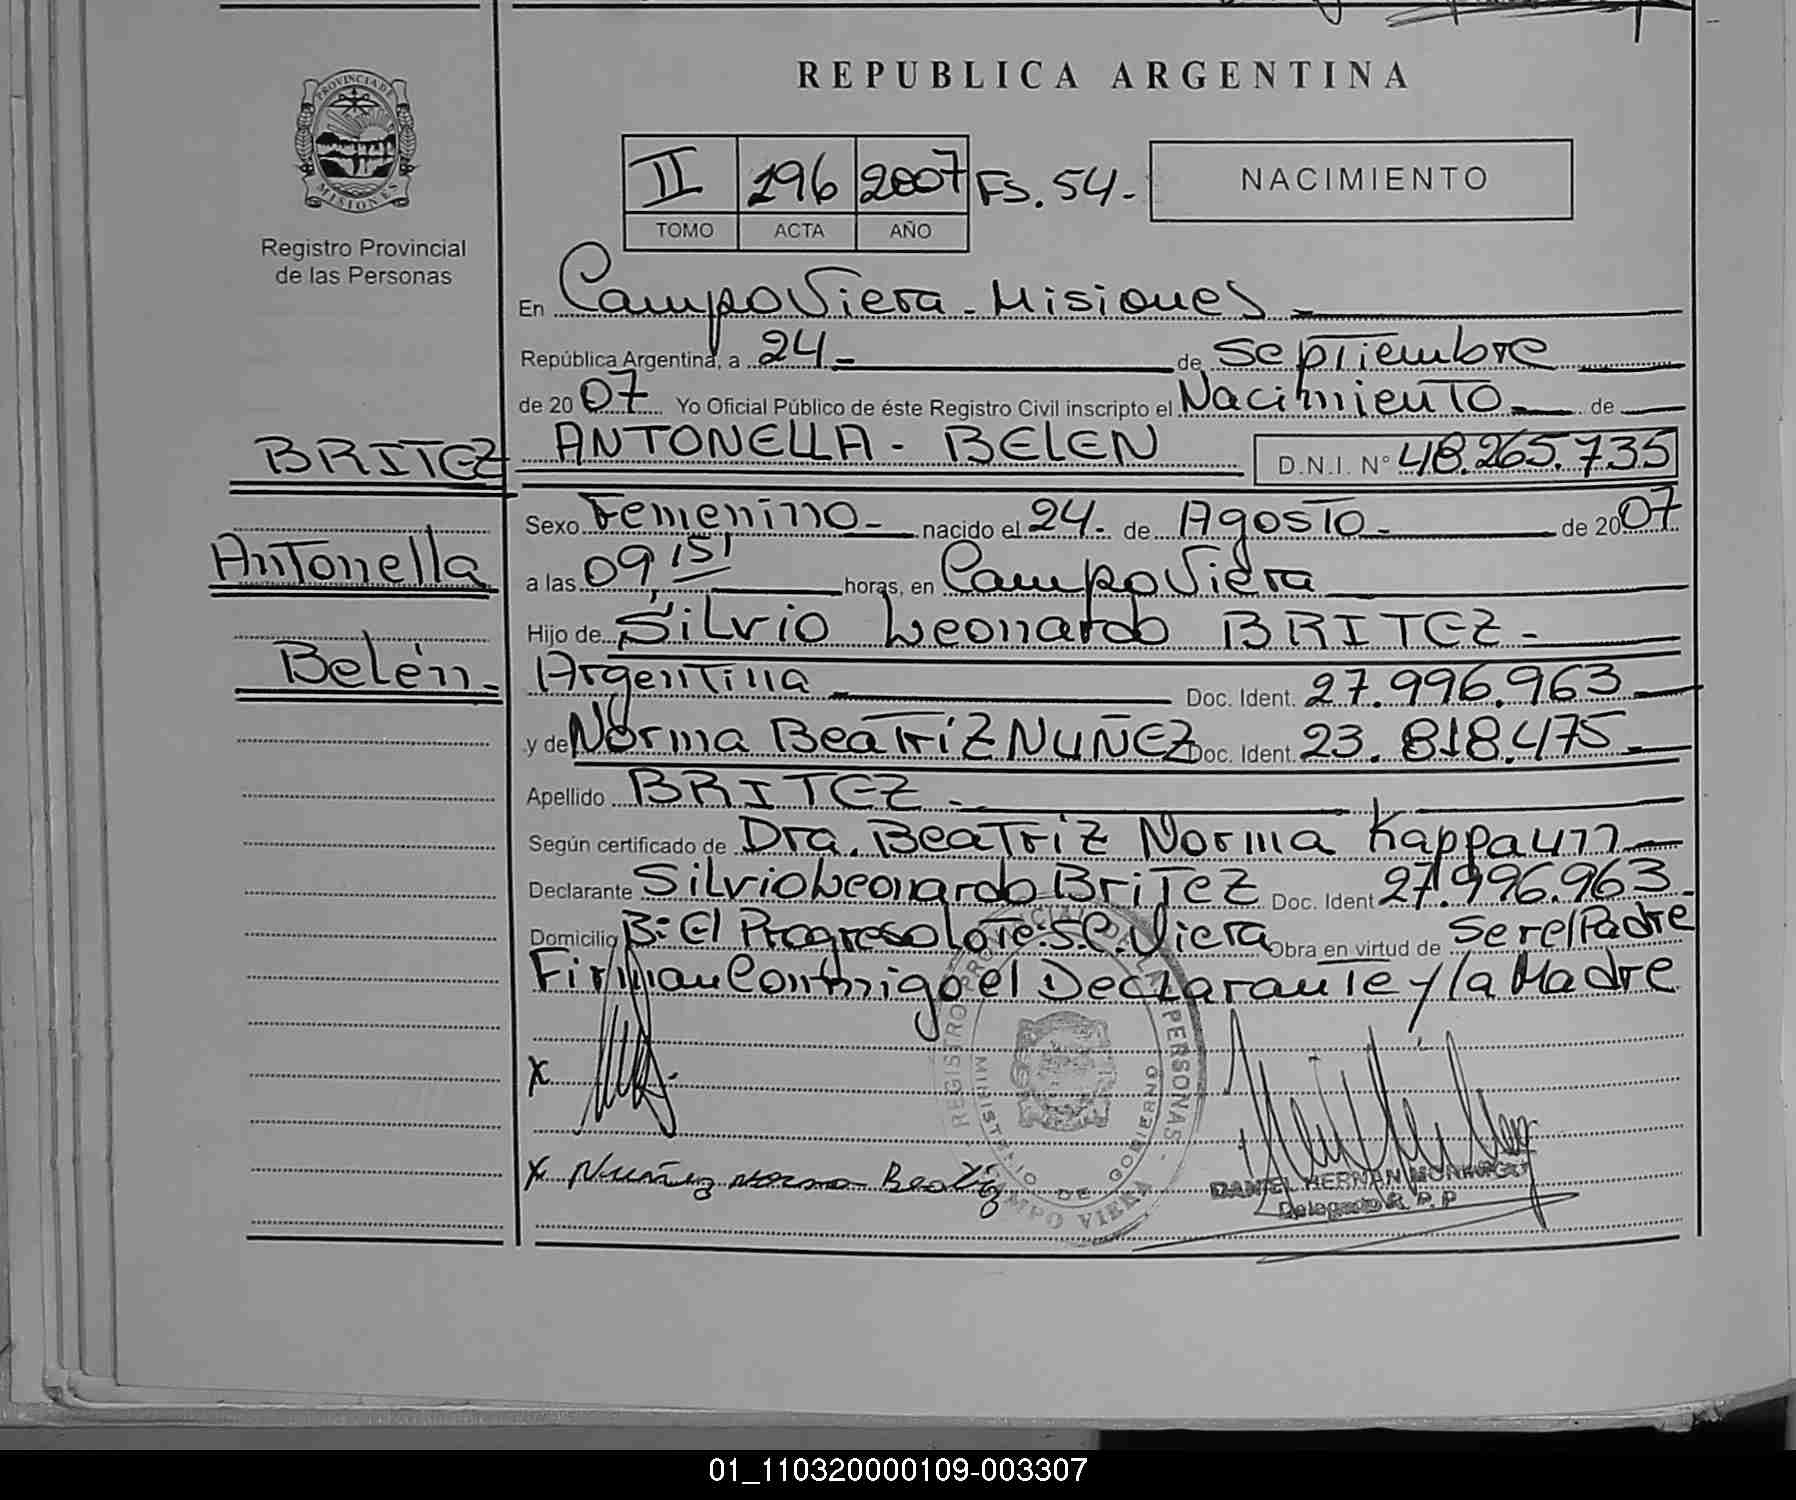 REPUBLICA ARGENTINA
PROVINCIA DE
MISIONES
Registro Provincial
de las Personas
II 196 2007 FS. 54.-
TOMO ACTA AÑO
NACIMIENTO
En Campo Viera - Misiones
República Argentina, a 24 - de septiembre
de 2007 Yo Oficial Público de éste Registro Civil inscripto el Nacimiento de
BRITEZ ANTONELLA - BELEN D.N.I. N° 48.265.735
Sexo Femenino - nacido el 24 - de Agosto - de 2007
Antonella
a las 09,15' horas, en Campo Viera
Hijo de Silvio Leonardo BRITEZ -
Belén - Argentina Doc. Ident. 27.996.963
y de Norma Beatriz NUÑEZ Doc. Ident. 23.818.475 -
Apellido BRITEZ -
Según certificado de Dra. Beatriz Norma Kappaunn
Declarante Silvio Leonardo Britez Doc. Ident 27.996.963 -
Domicilio B: El Progreso Lote: S.C. Viera Obra en virtud de ser el Padre
Firman Conmigo el Declarante y la Madre
X
X Nuñez Norma Beatriz
REGISTRO PROVINCIAL DE LAS PERSONAS -
MINISTERIO DE GOBIERNO
CAMPO VIERA
DANIEL HERNAN
Delegado R. P. P
01_110320000109-003307